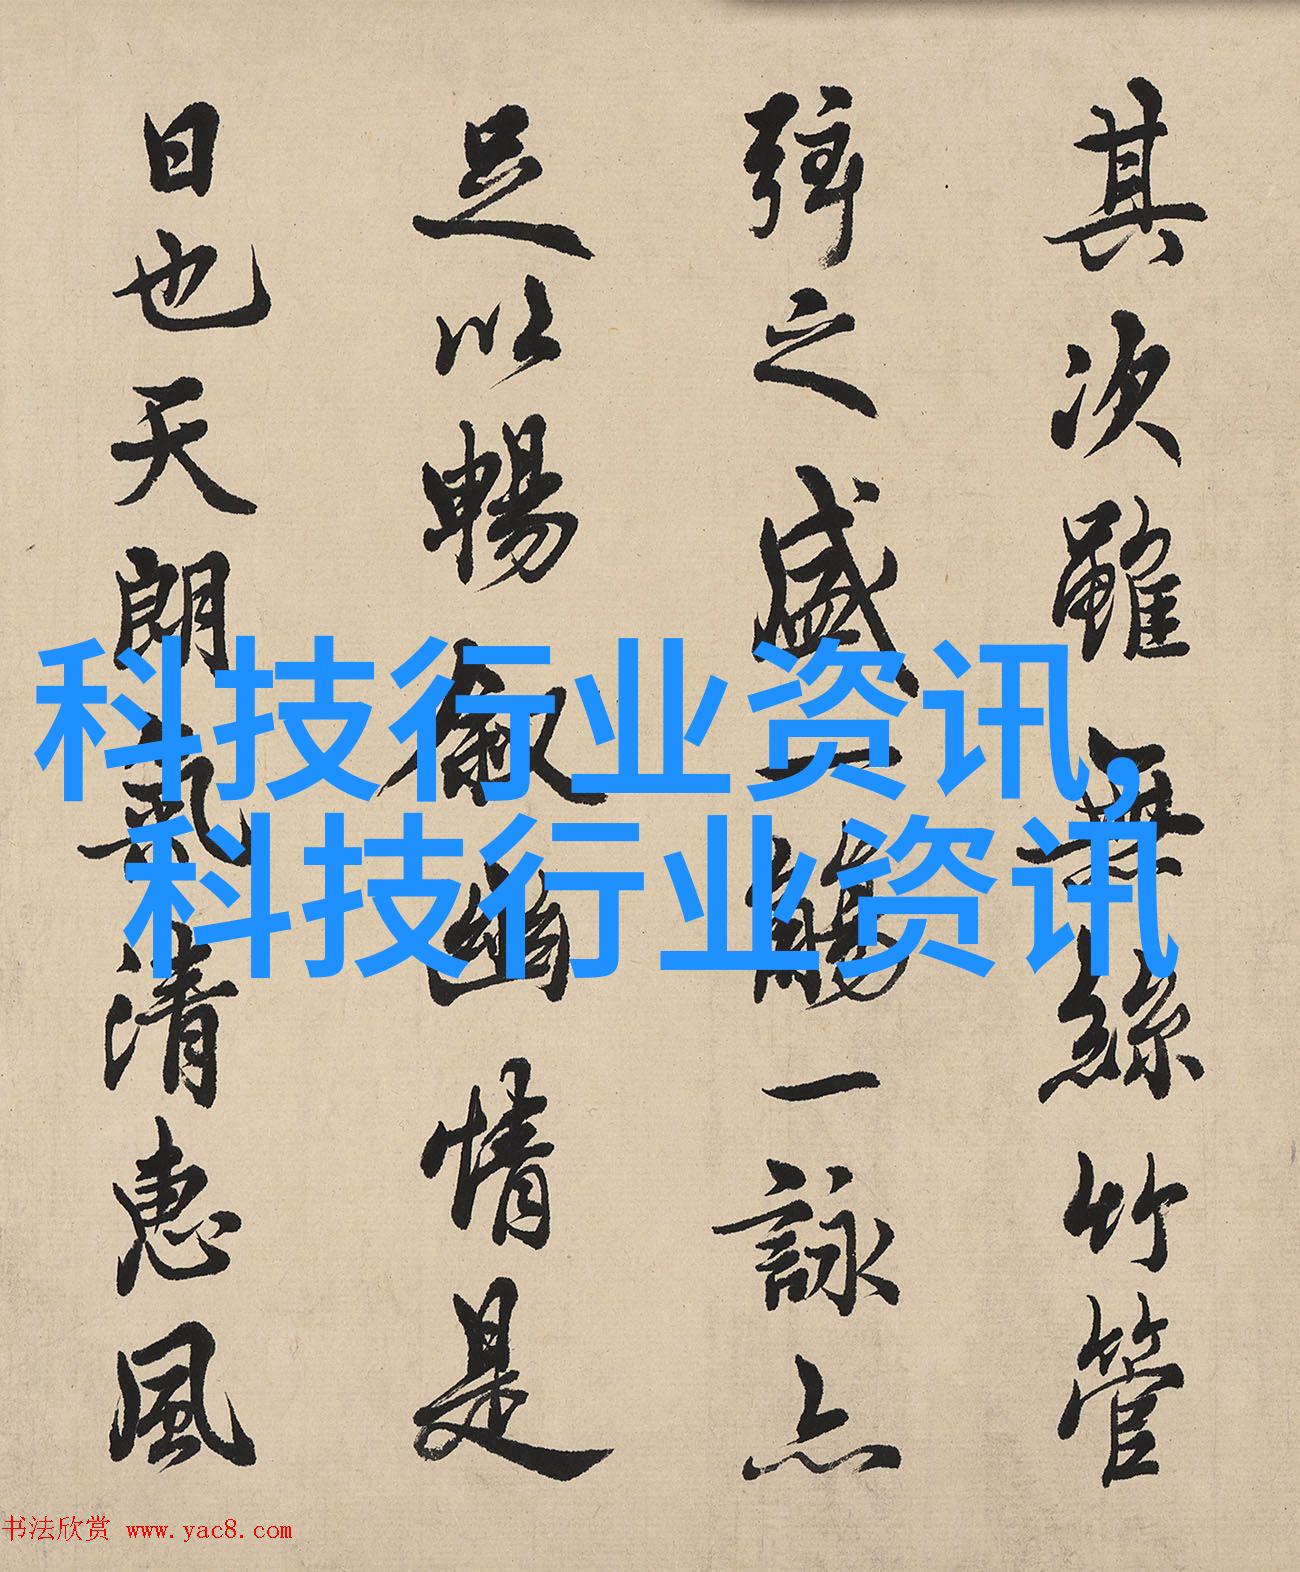 其次雖無絲竹管
弦之盛一觴一詠亦
足以暢叙幽情是
日也天朗氣清惠風
科技行业资讯,
科技行业资讯
书法欣赏 www.yac8.com